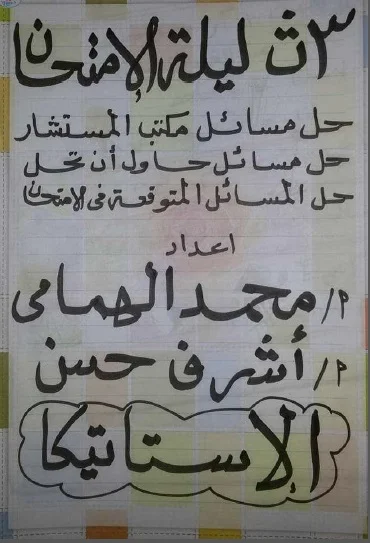 ٣ث ليلة الإمتحان
حل مسائل مكتب المستشار
حل مسائل حاول أن تحل
حل المسائل المتوقعة فى الامتحان
اعداد
م/ محمد الهمامى
م/ أشرف حسن
الإستاتيكا